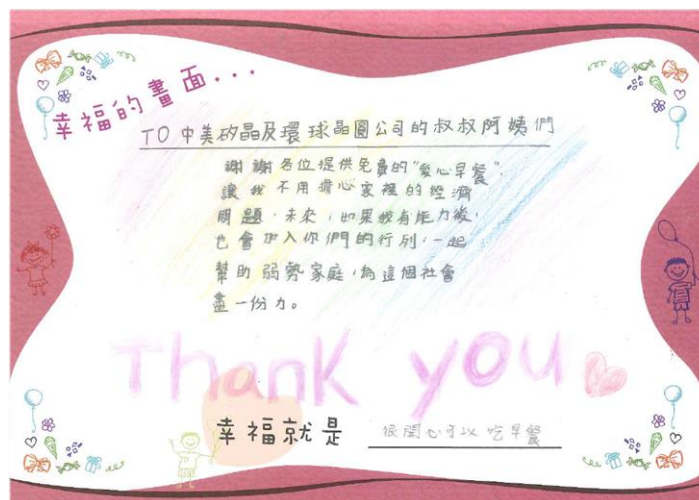 幸福的畫面...
TO 中美矽晶及環球晶圓公司的叔叔阿姨們
謝謝各位提供免費的"愛心早餐",
讓我不用擔心家裡的經濟
問題,未來,如果我有能力後,
也會加入你們的行列,一起
幫助弱勢家庭,為這個社會
盡一份力。
Thank you
幸福就是 很開心可以吃早餐